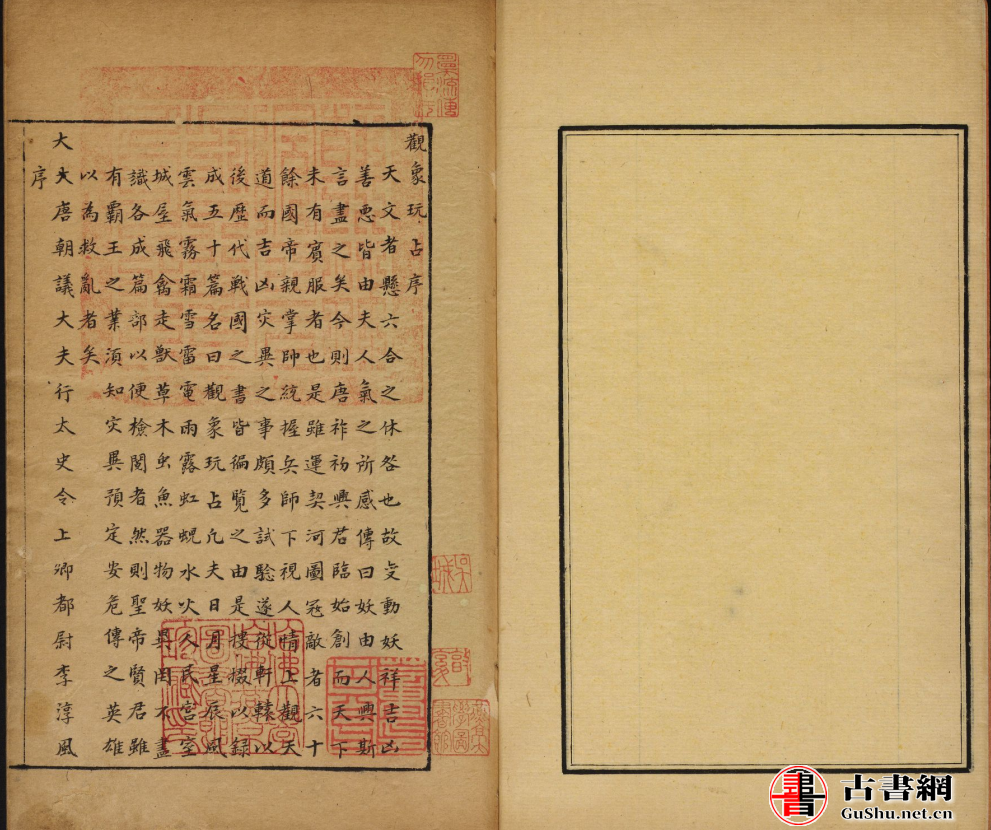 觀象玩占序
天文者懸六合之休咎也故变動妖祥吉凶
善惡皆由夫人氣之所感傳曰妖由人興斯
言盡之矣今則唐祚初興君臨始創而天下
未有賓服者也是雖運契河圖冦敵者六十
餘國帝親掌帥統握兵師下視人情上觀天
道而吉凶灾異之事頗多試驗遂從軒轅以
後歷代戰國之書皆徧覽之由是摟掇以録
成五十篇名曰觀象玩占凢夫日月星辰風
雲氣霧霜雪雷電雨露虹蜺水火人民宫室
城屋飛禽走獸草木虫魚器物妖異因不盡
識各成篇部以便檢閲者然則聖帝賢君雖
有霸王之業湏知灾異預定安危傳之英雄
以為救亂者矣
大大唐朝議大夫行太史令上卿都尉李淳風
序
古書網
GuShu.net.cn